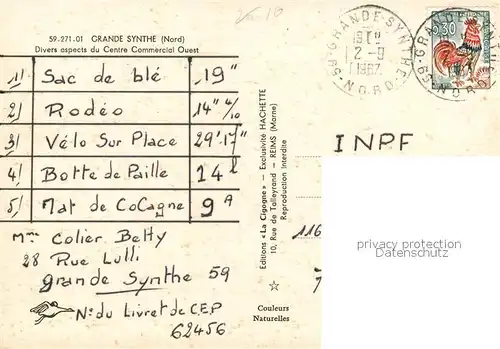 59-271.01 GRANDE SYNTHE (Nord)
Divers aspects du Centre Commercial Ouest
1/ Sac de blé 19"
2/ Rodéo 14" 4/10
3/ Vélo Sur Place 29'17"
4/ Botte de Paille 14 l
5/ Mat de CoCagne 9 A
Mme Colier Betty
28 Rue Lulli
grande Synthe 59
N° du Livret de C.E.P
62456
Editions « La Cigogne » — Exclusivité HACHETTE
10, Rue de Talleyrand — REIMS (Marne)
Reproduction Interdite
Couleurs
Naturelles
GRANDE SYNTHE
2-9
1967
59 NORD
0,30
59 GRANDE SYNTHE
NORD
INPF
116
privacy protection
Datenschutz.